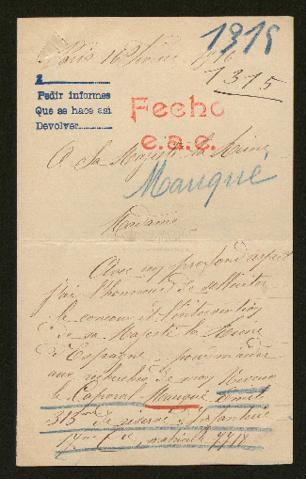 1315
Paris 16 Février 1916
1315
Pedir informes
Que se hace asi
Devolver
Fecho
e.a.e.
A Sa Majesté la Reine
Mauqué
Madame
Avec un profond respect
j'ai l'honneur de solliciter
le concours et l'intervention
de sa Majesté la Reine
d'Espagne pour
aux recherches de mon Neveu
le Caporal Mauqué
315me de réserve Infanterie
17me Cie matricule